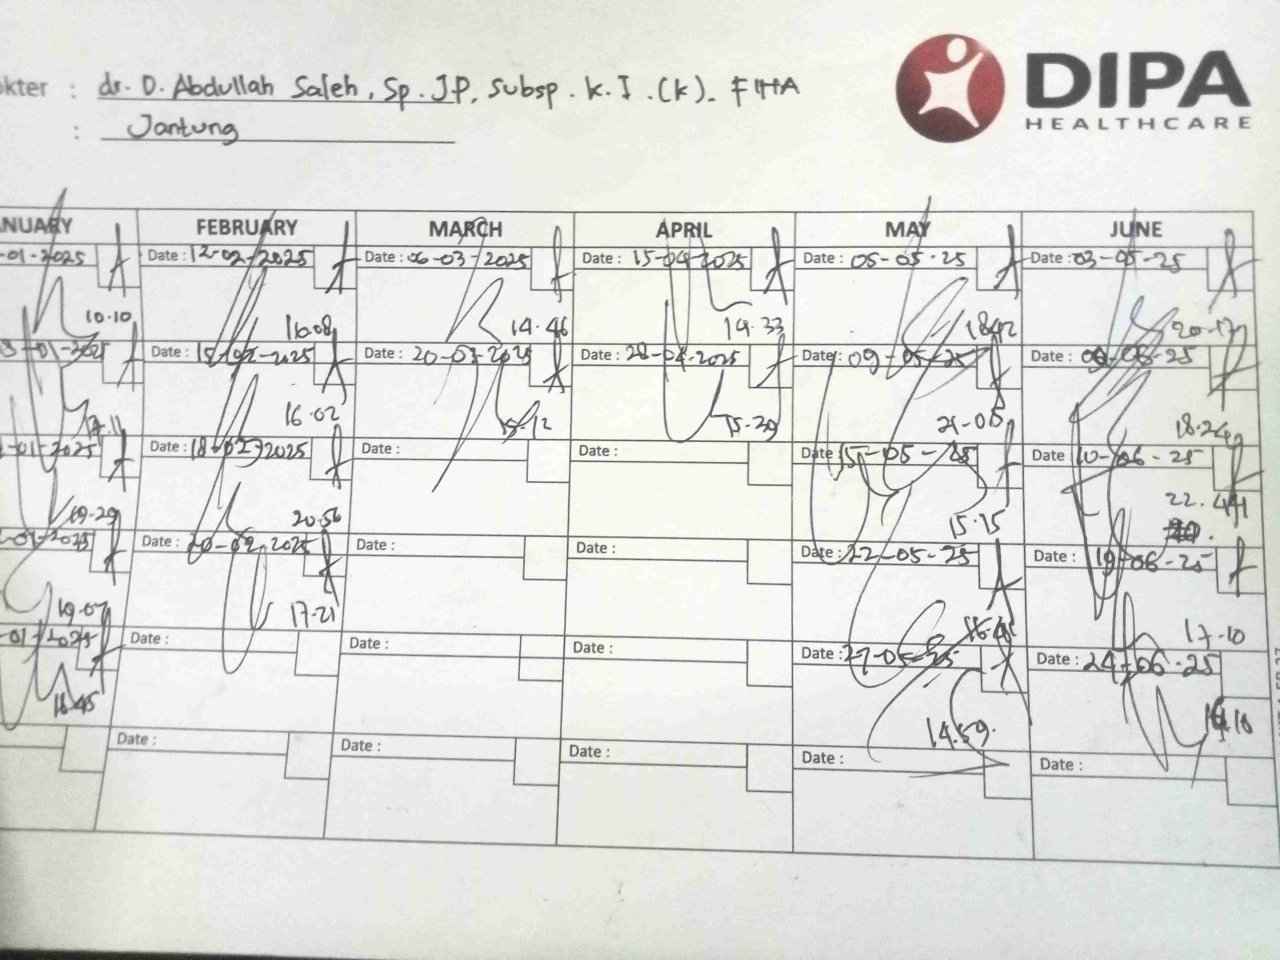 okter : dr. D. Abdullah Saleh, Sp. JP, Subsp. K.I.(K). FIHA
: Jantung
DIPA
HEALTHCARE
NUARY FEBRUARY MARCH APRIL MAY JUNE
-01-2025 Date : 12-02-2025 Date : 06-03-2025 Date : 15-04-2025 Date : 05-05-25 Date : 03-05-25
10.10 16.08 14.46 14.33 18.42 20.17
-01-2025 Date : 15-02-2025 Date : 20-03-2025 Date : 28-04-2025 Date : 09-05-25 Date : 06-06-25
16.02 15.12 15.30 21.08 18.24
-01-2025 Date : 18-02-2025 Date : Date : Date : 15-05-25 Date : 10-06-25
19.29 20.56 15.15 22.44
-01-2025 Date : 20-02-2025 Date : Date : Date : 22-05-25 Date : 19-06-25
19.07 17.21 17.10
-01-2025 Date : Date : Date : Date : 27-05-25 Date : 24-06-25
18.45 14.59
Date : Date : Date : Date : Date :